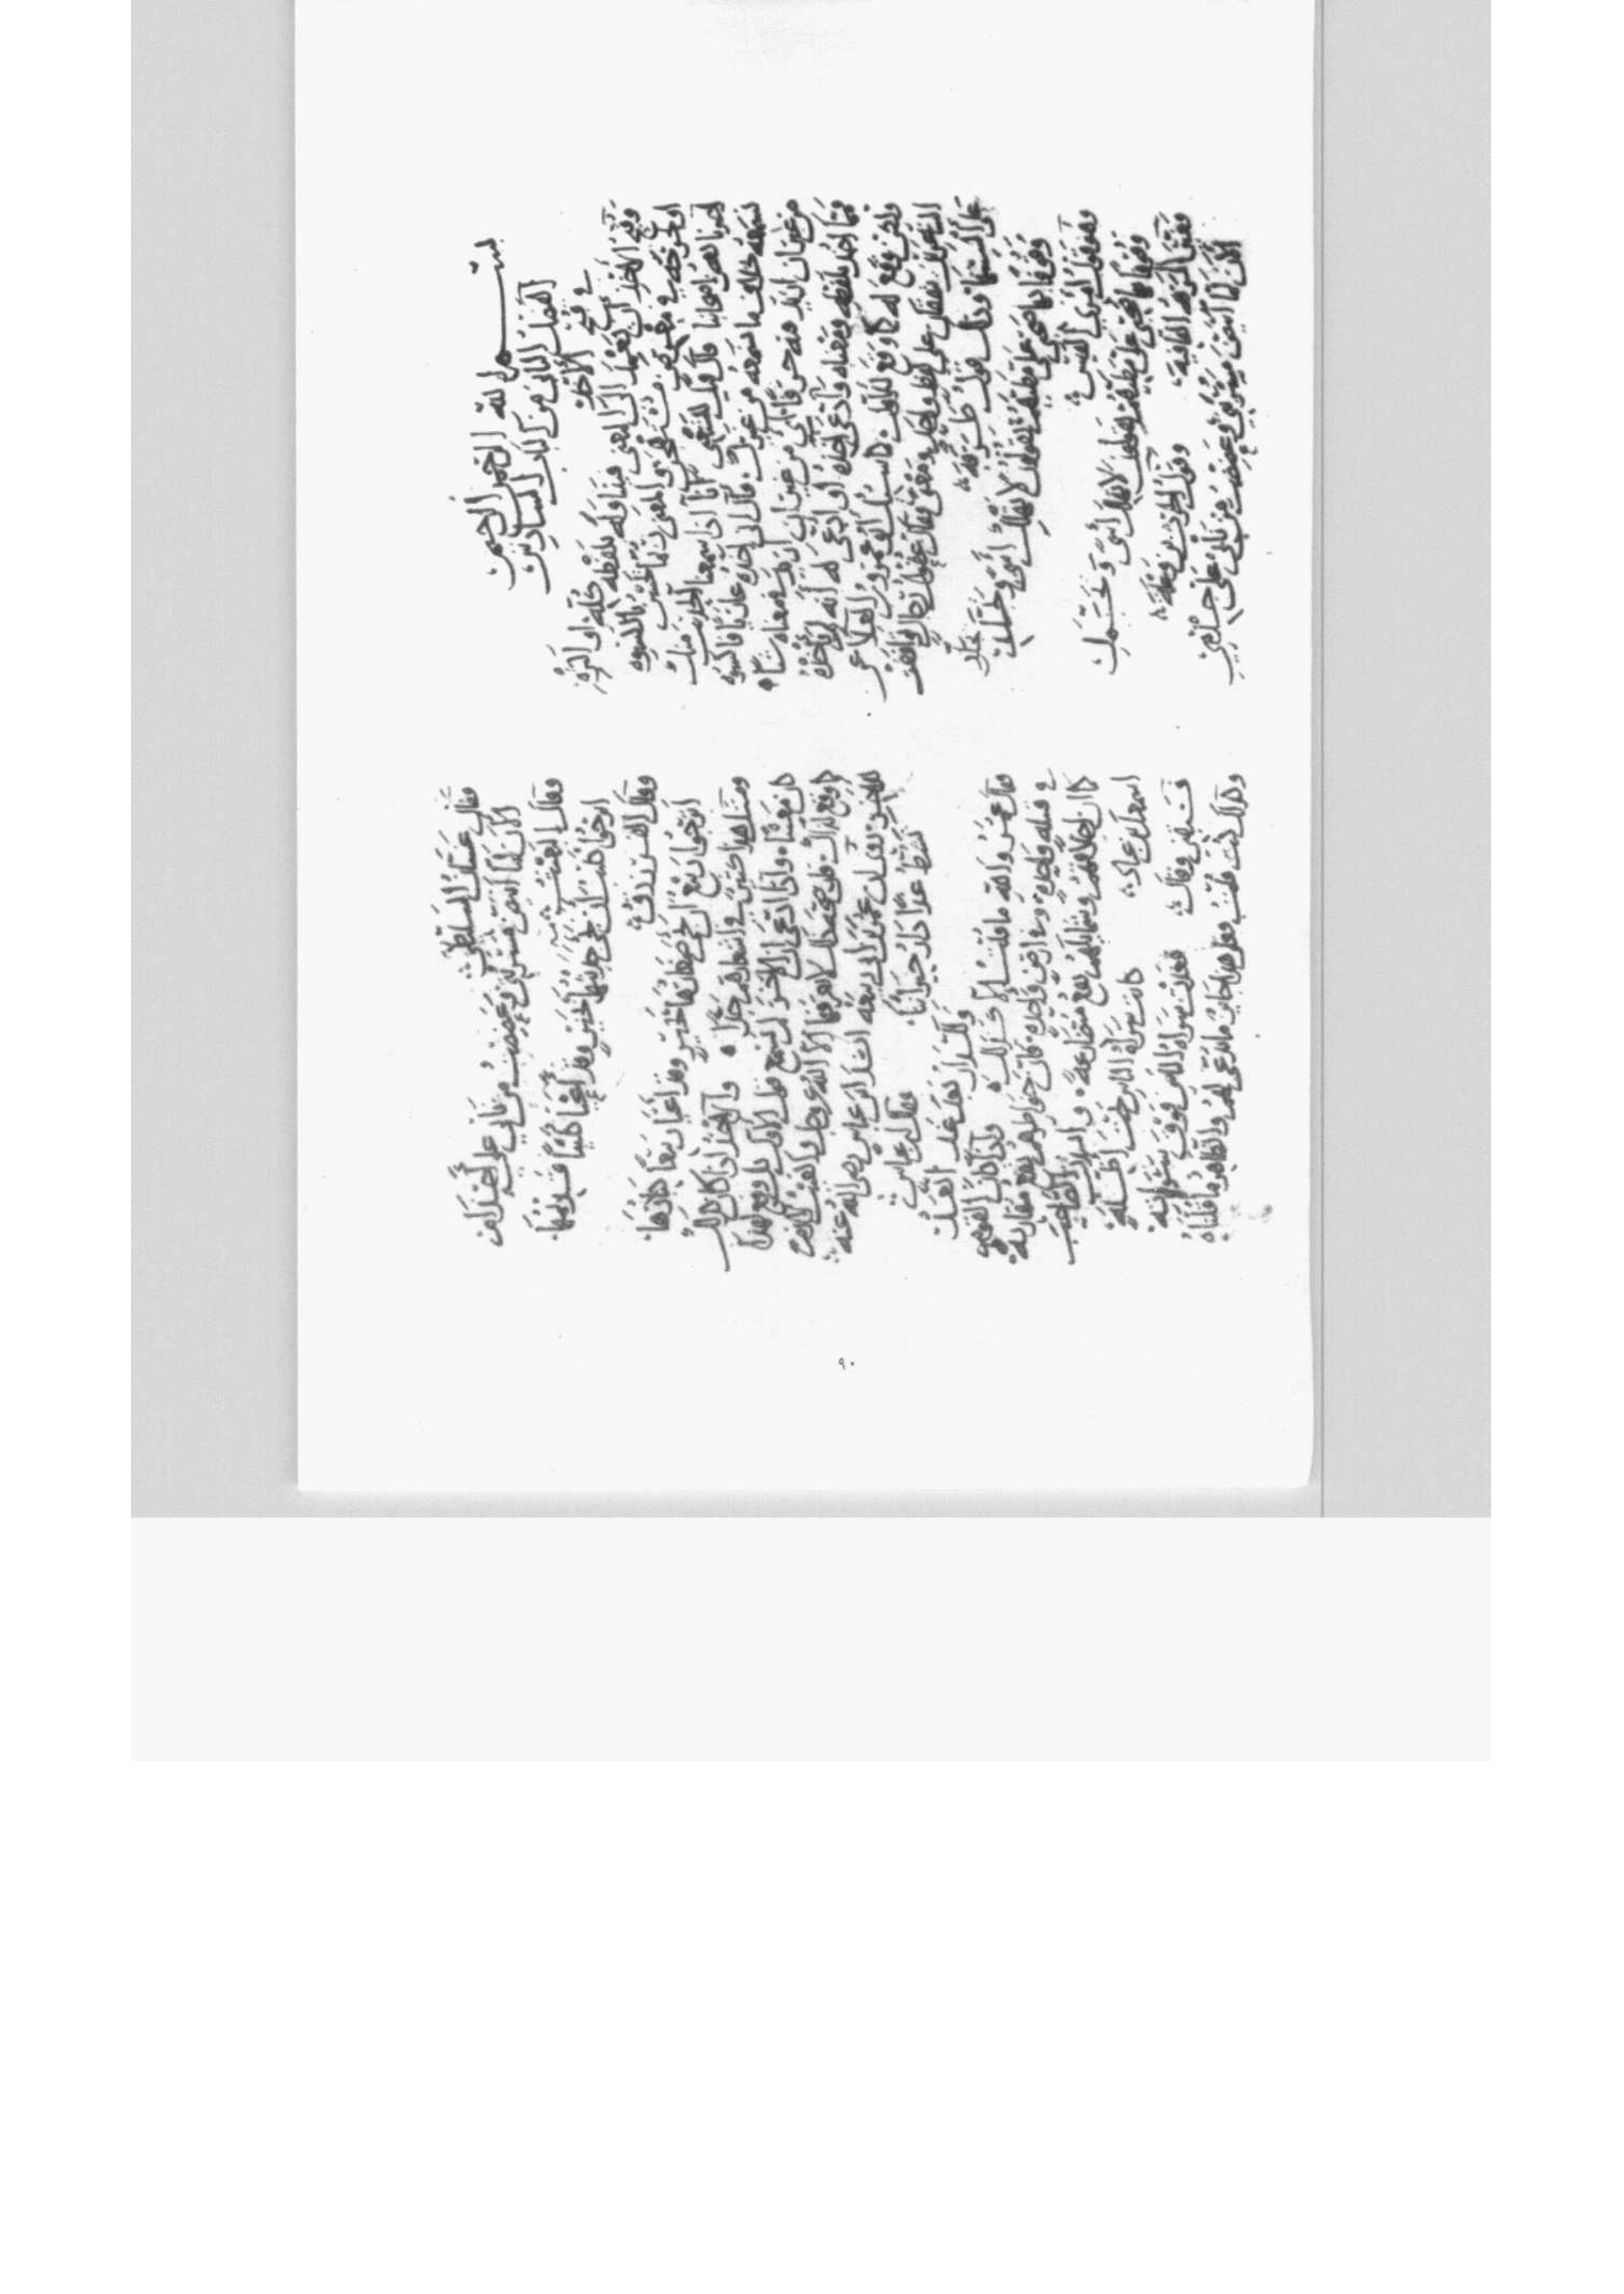 بسم الله الرحمن الرحيم
الفصل الثاني من الباب السادس
في قبح الأخذ
وقبح الأخذ أن تعمد إلى المعنى فتتناوله بلفظه كله أو أكثره
أو تخرجه في معرض مستهجن والمعنى إنما يحسن بالكسوة
أخبرنا بعض أصحابنا قال قيل للشعبي إنا إذا سمعنا الحديث منك
نسمعه خلاف ما نسمعه من غيرك فقال إني أجده عاريا فأكسوه
من غير أن أزيد فيه حرفا أي من غير أن أزيد في معناه شيئا
فما أخذ بلفظه ومعناه وادعى آخذه أو ادعي له أنه لم يأخذه
ولكن وقع له كما وقع للأول كما سئل أبو عمرو بن العلاء عن
على لفظ واحد ومعنى فقال عقول رجال توافت
على ألسنتها وذلك قول طرفة
وقوفا بها صحبي علي مطيهم يقولون لا تهلك أسى وتجلد
وهو قول امرئ القيس
وقوفا بها صحبي علي مطيهم يقولون لا تهلك أسى وتجمل
فغير طرفة القافية وقول الحارث بن وعلة
الآن لما ابيض مسربتي وعضضت من نابي على جذم
وقال غسان السليطي
الآن لما ابيض مسربتي وعضضت من نابي على أجذام
وقال البعيث
أترجو كليب أن يجيء حديثها بخير وقد أعيا كليبا قديمها
وقال الفرزدق
أترجو ربيع أن تجيء صغارها بخير وقد أعيا ربيعا كبارها
ومثل هذا كثير في أشعارهم جدا والأخذ إذا كان كذلك
كان معيبا وإن ادعى أن الآخر لم يسمع قول الأول بل وقع لهذا
كما وقع لذاك فإن صحة ذلك لا يعرفها إلا الله عز وجل والعيب لازم
للآخر عمر بن أبي ربيعة أنشد ابن عباس رضي الله عنه
تشط غدا دار جيراننا فقال ابن عباس
وللدار بعد غد أبعد
فقال عمر والله ما قلت إلا كذلك وإذا كان القوم
في قبيلة واحدة وفي أرض واحدة فإن خواطرهم تقع متقاربة
كما أن أخلاقهم وشمائلهم تقع متضارعة وأنشدت الصاحب
إسماعيل بن عباد كانت سراة الناس تحت أظله
فسبقني وقال فغدت سراة الناس فوق سراته
وكذلك كنت قلت فعلى هذا جائز ما يدعى لهم والظاهر ما قلناه
٩٠